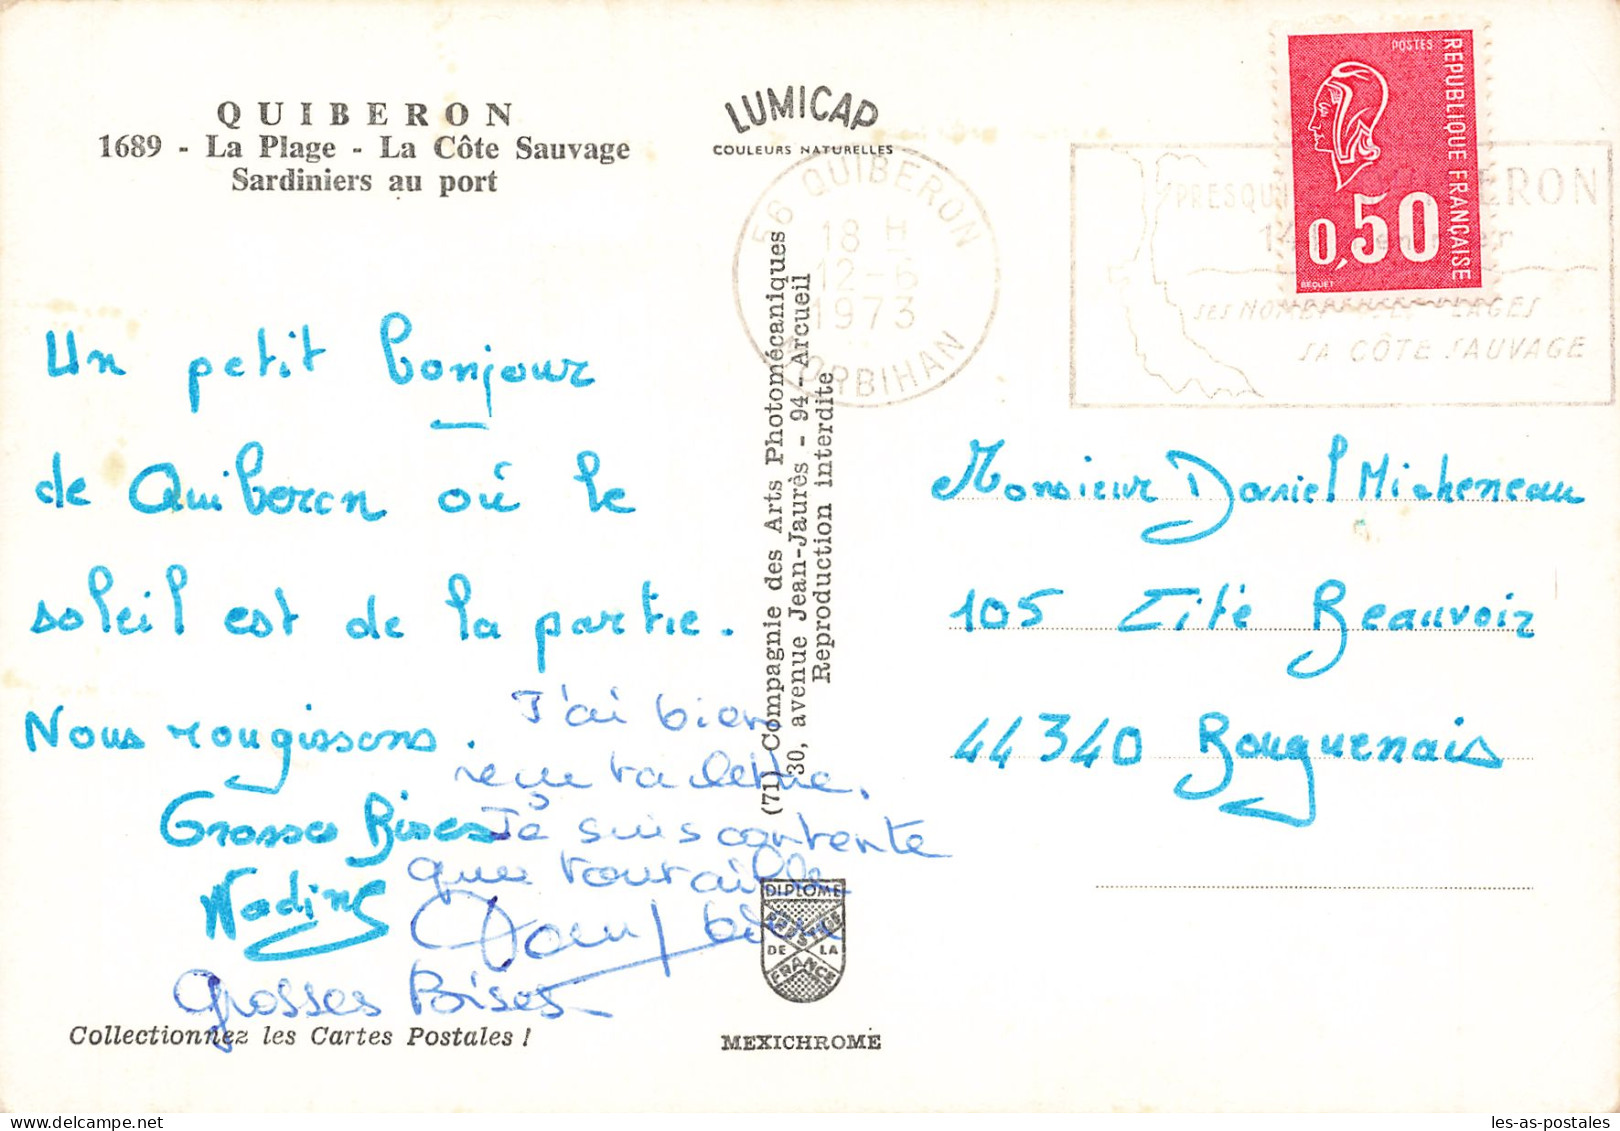 QUIBERON
1689 - La Plage - La Côte Sauvage
Sardiniers au port
LUMICAP
COULEURS NATURELLES
56 QUIBERON
18 H
12-6
1973
MORBIHAN
POSTES
REPUBLIQUE FRANÇAISE
0,50
BEQUET
ERON
SA CÔTE SAUVAGE
Un petit bonjour
de Quiberon où le
soleil est de la partie.
Nous rougissons.
Grosses Bises
Nadine
J'ai bien
reçu ta lettre.
Je suis contente
que tout aille
bien
Grosses Bises
Collectionnez les Cartes Postales !
(71) Compagnie des Arts Photomécaniques
30, avenue Jean-Jaurès - 94 - Arcueil
Reproduction interdite
DIPLOME
PRESTIGE
DE LA
FRANCE
MEXICHROME
Monsieur Daniel Micheneau
105 Cité Beauvoir
44340 Bouguenais
les-as-postales